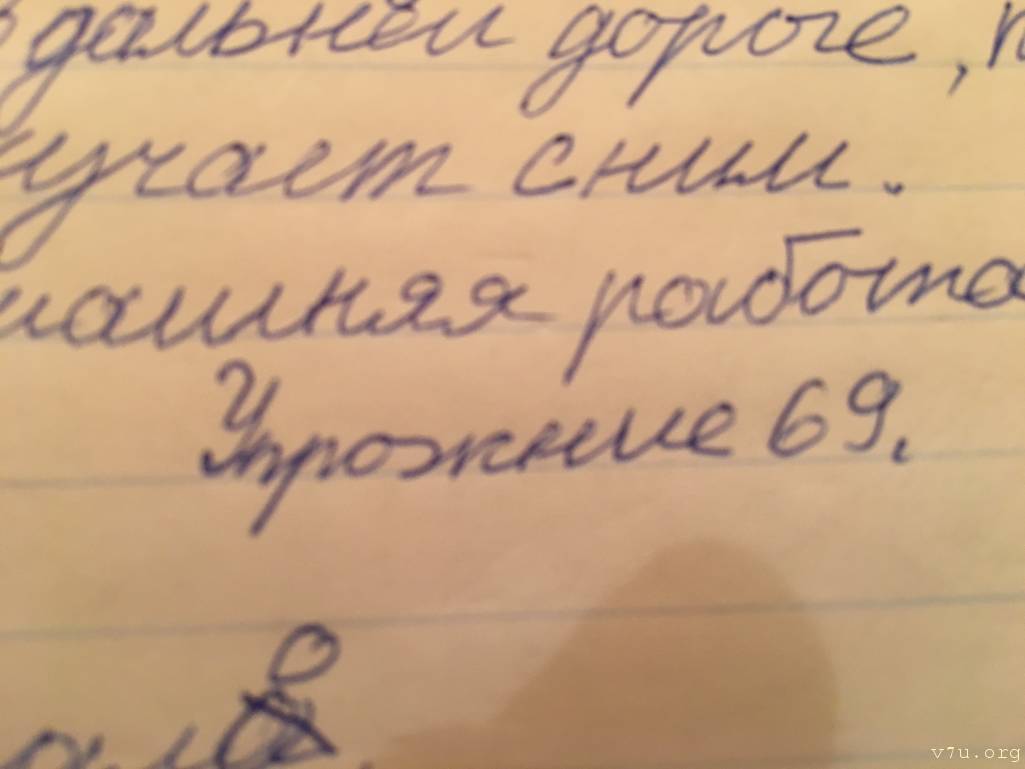 дальней дороге, п
учает сним.
машняя работа
Упрожние 69.
ало
v7u.org